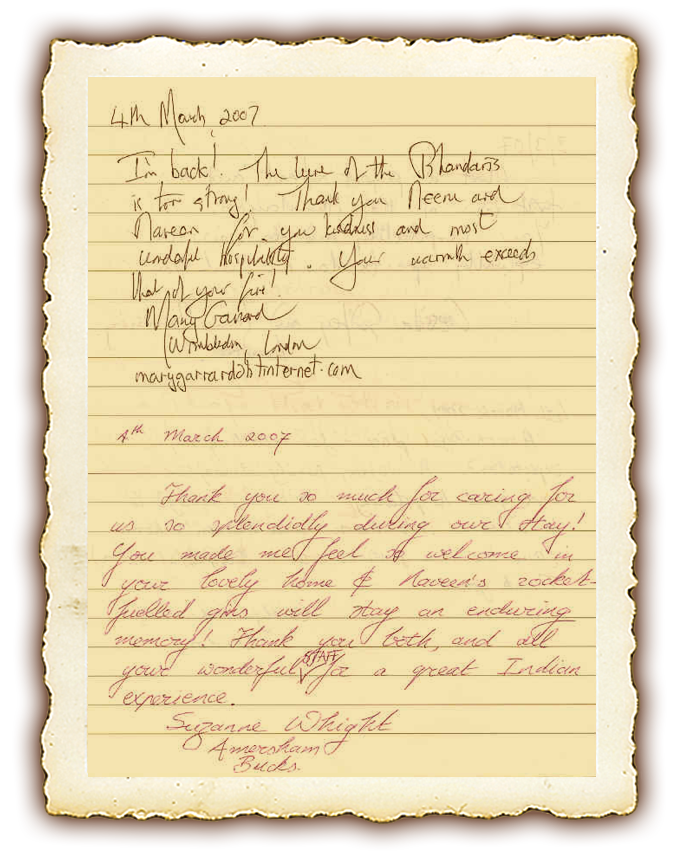 4th March, 2007
I'm back! The lure of the Bhandaris
is too strong! Thank you Neenu and
Naveen for you kindness and most
wonderful Hospitality. Your warmth exceeds
that of your fire!
Mary Garrard
Wimbledon, London
marygarrard@btinternet.com
4th March 2007
Thank you so much for caring for
us so splendidly during our stay!
You made me feel so welcome in
your lovely home & Naveen's rocket-
fuelled gins will stay an enduring
memory! Thank you both, and all
your wonderful STAFF for a great Indian
experience.
Suzanne Whight
Amersham
Bucks.